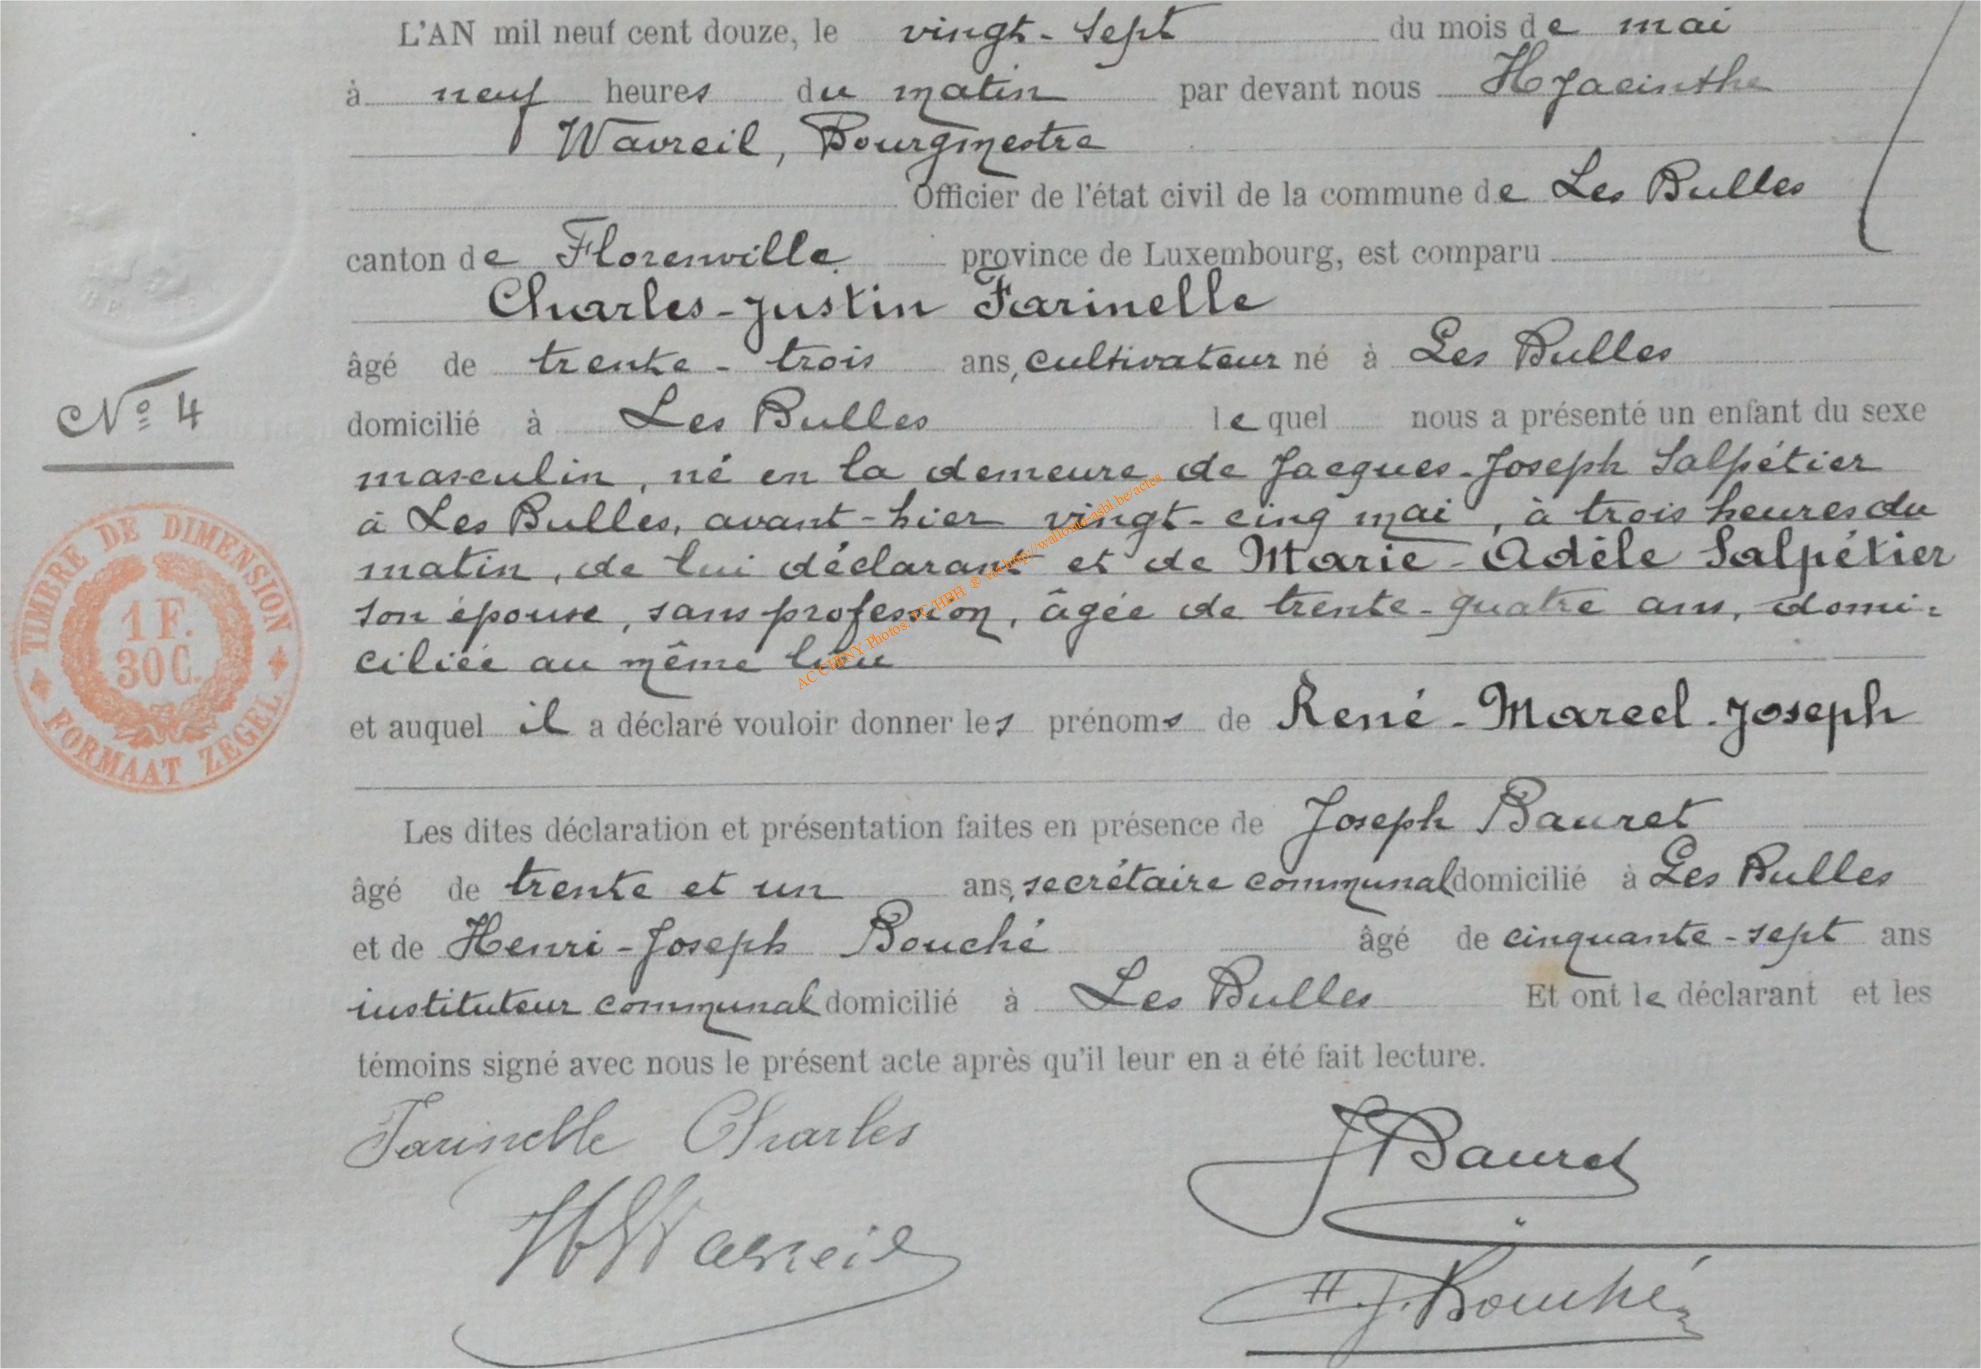 L'AN mil neuf cent douze, le vingt-sept du mois de mai
à neuf heures du matin par devant nous Hyacinthe
Wavreil, Bourgmestre
Officier de l'état civil de la commune de Les Bulles
canton de Florenville province de Luxembourg, est comparu
Charles-Justin Farinelle
âgé de trente-trois ans, cultivateur né à Les Bulles
No 4
domicilié à Les Bulles lequel nous a présenté un enfant du sexe
masculin, né en la demeure de Jacques-Joseph Salpétier
à Les Bulles, avant-hier vingt-cinq mai, à trois heures du
matin, de lui déclarant et de Marie-Adèle Salpétier
son épouse, sans profession, âgée de trente-quatre ans, domi=
ciliée au même lieu
TIMBRE DE DIMENSION
1 F.
30 C.
FORMAAT ZEGEL
AC CHINY Photos. http://wallonia-asbl.be/actes
et auquel il a déclaré vouloir donner les prénoms de René-Marcel-Joseph
Les dites déclaration et présentation faites en présence de Joseph Bauret
âgé de trente et un ans, secrétaire communal domicilié à Les Bulles
et de Henri-Joseph Bouché âgé de cinquante-sept ans
instituteur communal domicilié à Les Bulles Et ont le déclarant et les
témoins signé avec nous le présent acte après qu'il leur en a été fait lecture.
Farinelle Charles
J Bauret
H Wavreil
H. J. Bouché